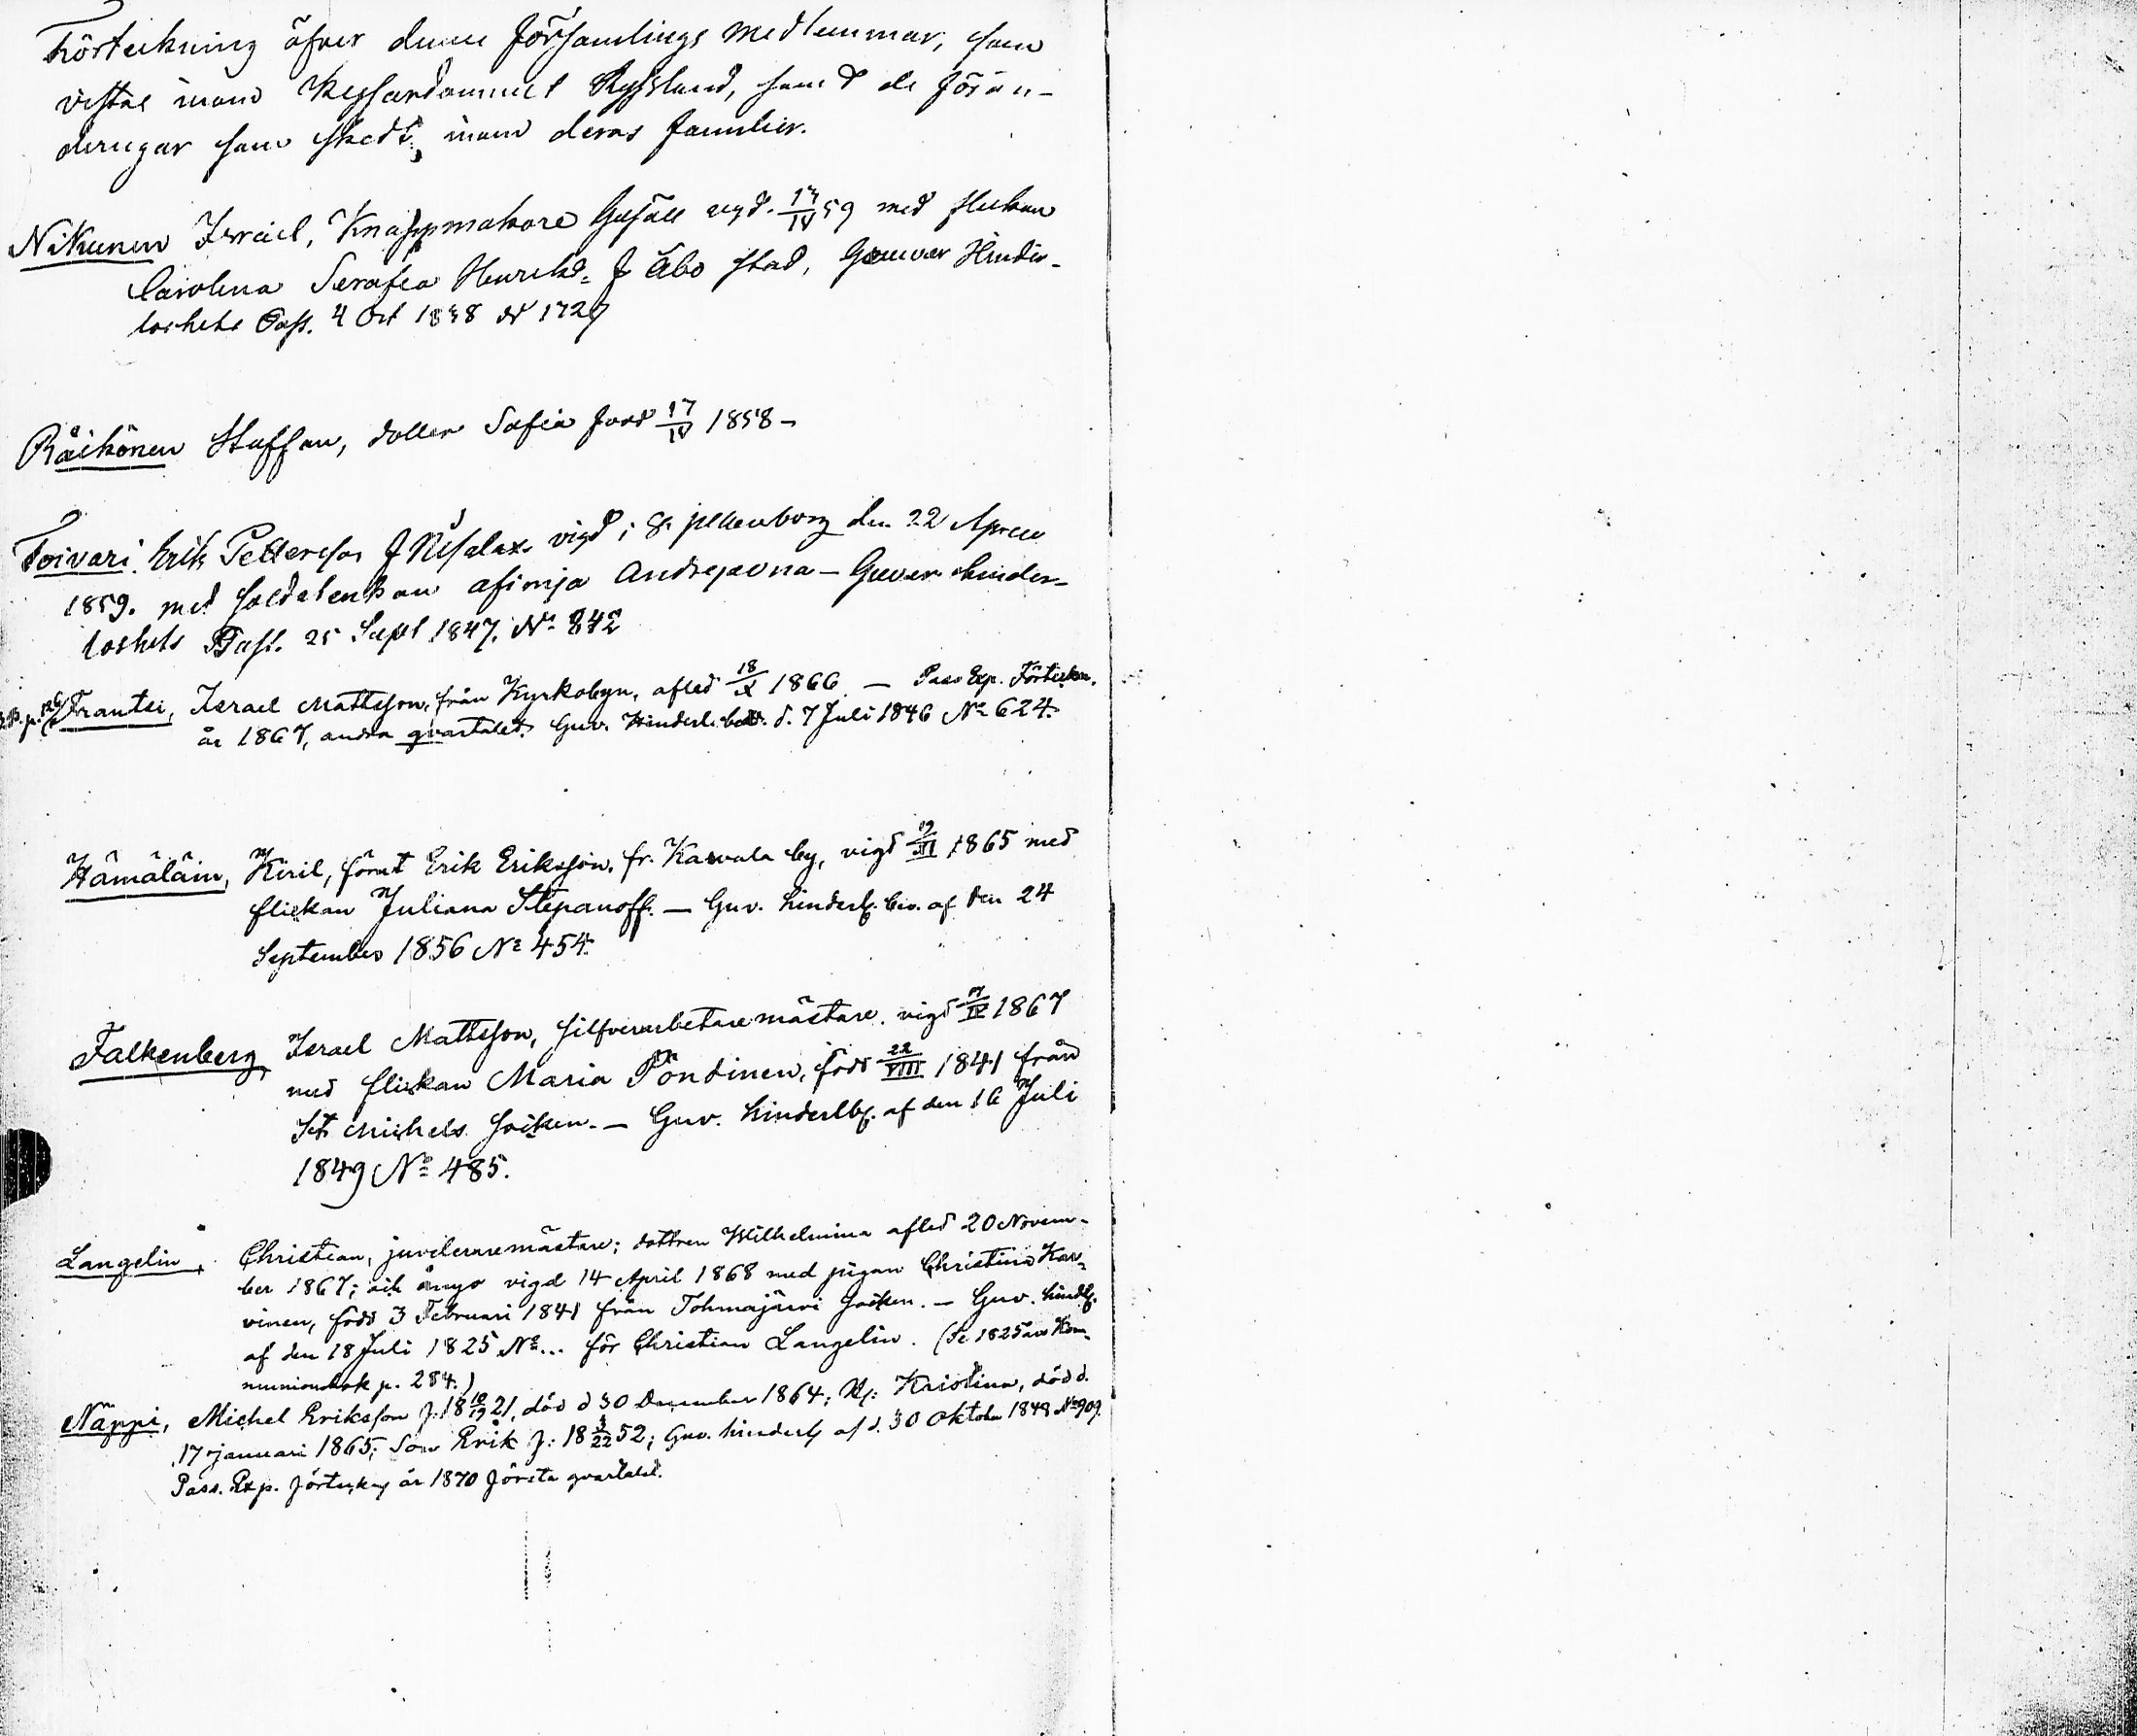 Förteckning öfver denna församlings medlemmar, som
vistas inom Kejsardömmet Ryssland, samt de förän-
deringar som skedt inom deras familier.
Nikunen Israel, Knappmakare Gesäll vigd. 17/IV 59 med flickan
Carolina Serafia Henriksd. f Åbo stad, Guver Hinder-
löshets Pass. 4 Oct 1838 N 1729
Räikönen Staffan, dotter Sofia född 17/IV 1858 -
Toivari Erik Pettersson f vigd i St petersborg den 22 April
1859. med soldatenkan Afimja Andrejevna - Guver hinder-
löshets Pass. 25 Sept 1847. No 842
Frantsi, Israel Mattsson, från Kyrkobyn, afled 18/X 1866. — Pass Exp. Förteckn.
år 1867, andra qvartalet. Guv. Hinderl. bev. d. 7 Juli 1846 No 624.
Hämäläin, Kiril, förut Erik Eriksson, fr. Karvala by, vigd 1865 med
flickan Juliana Stepanoff. — Guv. hinderl. bev. af den 24
September 1856 No 454.
Falkenberg, Israel Mattsson, silfverarbetaremästare. vigd 1867
med flickan Maria Pöndinen, född 22/VIII 1841 från
St Michels socken. — Guv. hinderlb. af den 16 Juli
1849 No 485.
Langelin, Christian, juveleraremästare; dottren Wilhelmina afled 20 Novem-
ber 1867; och ånyo vigd 14 April 1868 med pigan Christina Kar-
vinen, född 3 Februari 1841 från Tohmajärvi socken. — Guv. hindlb.
af den 18 Juli 1825 No... för Christian Langelin. (Se 1825 års Kom-
munionbok p. 284.)
Näppi, Michel Eriksson f. 18 10/19 21, död d 30 December 1864; Kristina, död d.
17 januari 1865; Son Erik f: 18 3/22 52; Guv. hinderlb af d. 30 Oktober 1848 No 909.
Pass. Exp. förteckng år 1870 första qvartalet.